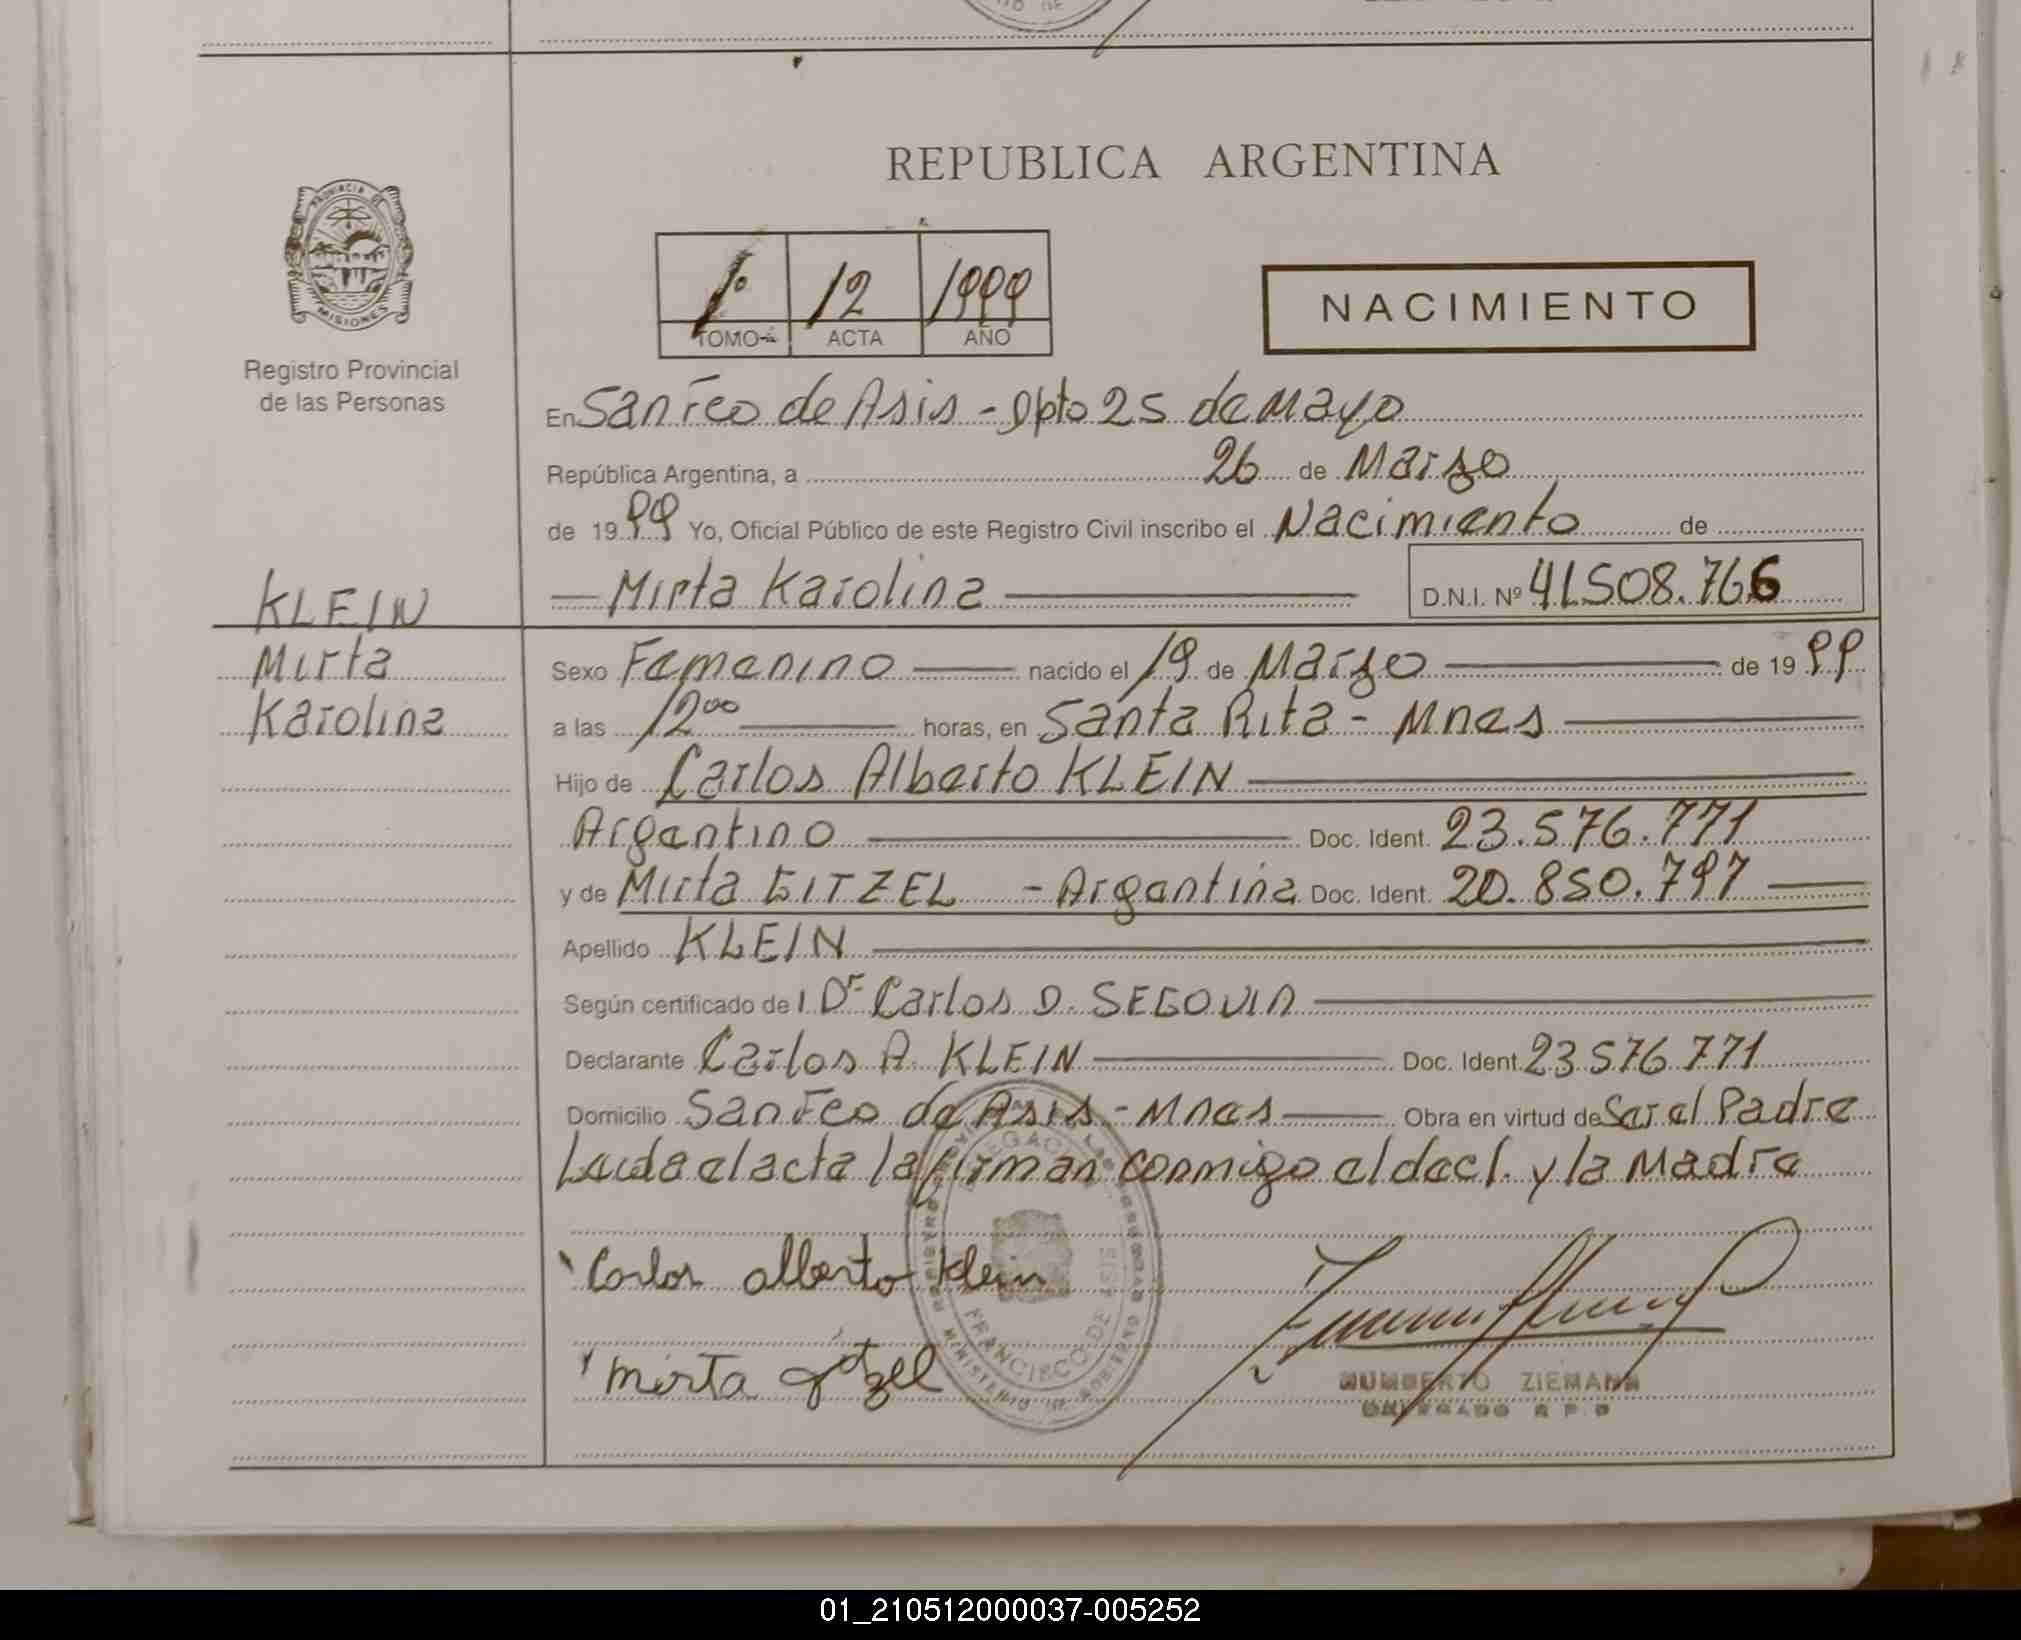 REPUBLICA ARGENTINA
PROVINCIA DE
MISIONES
Registro Provincial
de las Personas
1º 12 1999
TOMO ACTA AÑO
NACIMIENTO
En San Fco de Asis - Dpto 25 de Mayo
República Argentina, a 26 de Marzo
de 1999 Yo, Oficial Público de este Registro Civil inscribo el Nacimiento de
Mirta Karolina D.N.I. Nº 41.508.766
KLEIN
Mirta
Karolina
Sexo Femenino nacido el 19 de Marzo de 1999
a las 12 00 horas, en Santa Rita - Mnes
Hijo de Carlos Alberto KLEIN
Argentino Doc. Ident. 23.576.771
y de Mirta GITZEL - Argentina Doc. Ident. 20.850.797
Apellido KLEIN
Según certificado de Dr. Carlos D. SEGOVIA
Declarante Carlos A. KLEIN Doc. Ident. 23.576.771
Domicilio San Fco de Asis - Mnes Obra en virtud de Ser el Padre
Leida el acta la firman conmigo el decl. y la Madre
Carlos alberto Klein
mirta gitzel
FRANCISCO DE ASIS
MINISTERIO DE GOBIERNO
HUMBERTO ZIEMANN
DELEGADO R P P
01_210512000037-005252